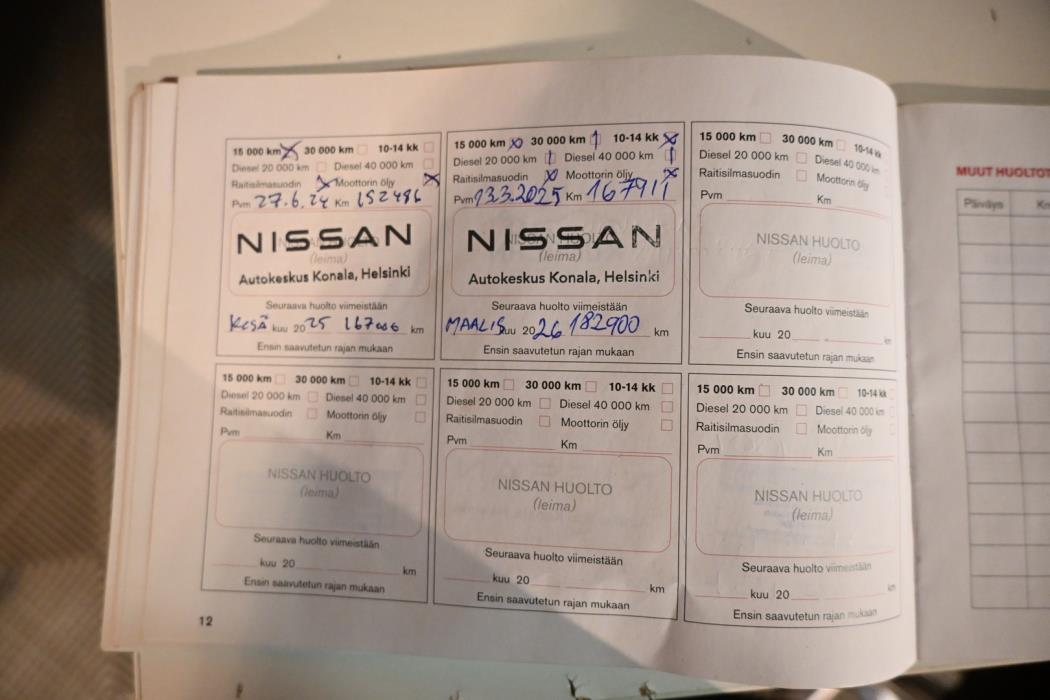 15 000 km 30 000 km 10-14 kk
Diesel 20 000 km Diesel 40 000 km
Raitisilmasuodin Moottorin öljy
Pvm 27.6.24 Km 152486
NISSAN
(leima)
Autokeskus Konala, Helsinki
Seuraava huolto viimeistään
KESÄ kuu 2025 167000 km
Ensin saavutetun rajan mukaan
15 000 km 30 000 km 10-14 kk
Diesel 20 000 km Diesel 40 000 km
Raitisilmasuodin Moottorin öljy
Pvm 13.3.2025 Km 167911
NISSAN
(leima)
Autokeskus Konala, Helsinki
Seuraava huolto viimeistään
MAALIS kuu 2026 182900 km
Ensin saavutetun rajan mukaan
15 000 km 30 000 km 10-14 kk
Diesel 20 000 km Diesel 40 000 km
Raitisilmasuodin Moottorin öljy
Pvm Km
NISSAN HUOLTO
(leima)
Seuraava huolto viimeistään
kuu 20 km
Ensin saavutetun rajan mukaan
15 000 km 30 000 km 10-14 kk
Diesel 20 000 km Diesel 40 000 km
Raitisilmasuodin Moottorin öljy
Pvm Km
NISSAN HUOLTO
(leima)
Seuraava huolto viimeistään
kuu 20 km
Ensin saavutetun rajan mukaan
15 000 km 30 000 km 10-14 kk
Diesel 20 000 km Diesel 40 000 km
Raitisilmasuodin Moottorin öljy
Pvm Km
NISSAN HUOLTO
(leima)
Seuraava huolto viimeistään
kuu 20 km
Ensin saavutetun rajan mukaan
15 000 km 30 000 km 10-14 kk
Diesel 20 000 km Diesel 40 000 km
Raitisilmasuodin Moottorin öljy
Pvm Km
NISSAN HUOLTO
(leima)
Seuraava huolto viimeistään
kuu 20 km
Ensin saavutetun rajan mukaan
12
MUUT HUOLTOT
Päiväys